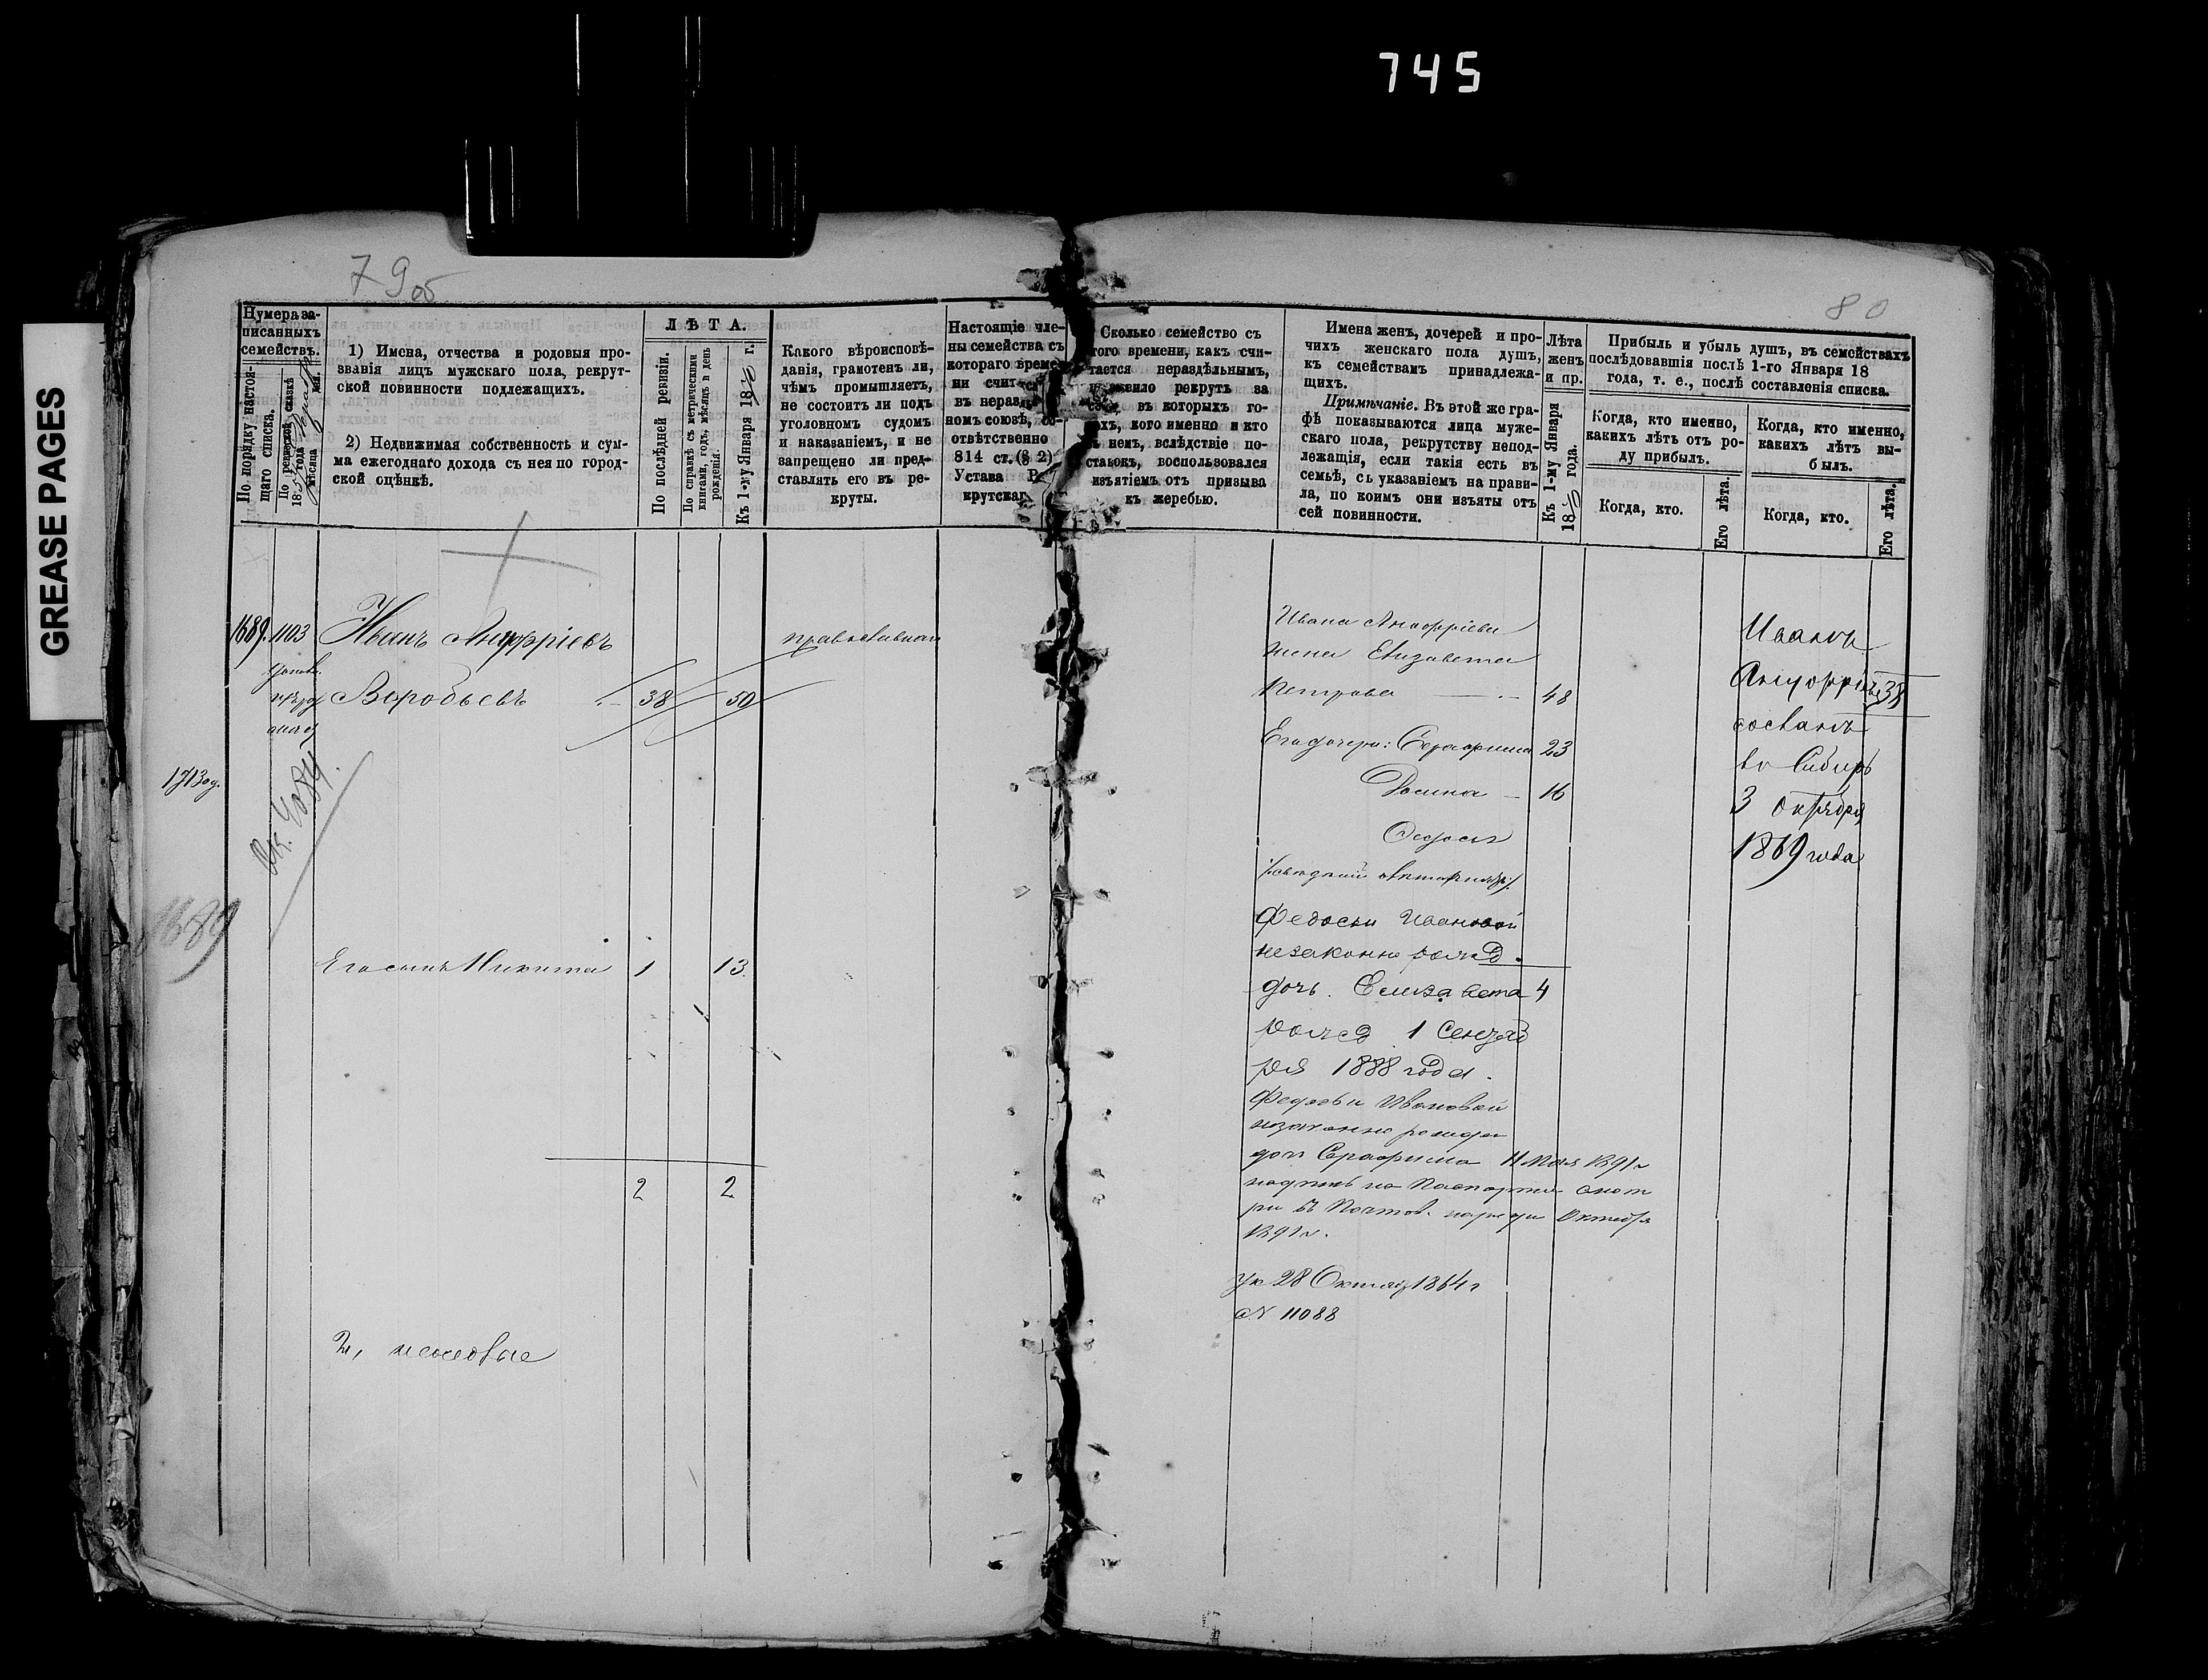 745
GREASE PAGES
79об
80
Нумера за-
писанныхъ
семействъ.
По порядку настоя-
щаго списка.
По ревизской сказкѣ
185 года
мѣсяца дня.
1) Имена, отчества и родовыя про-
званія лицъ мужскаго пола, рекрут-
ской повинности подлежащихъ.
2) Недвижимая собственность и сум-
ма ежегоднаго дохода съ нея по город-
ской оцѣнкѣ.
ЛѢТА.
По послѣдней ревизіи.
По справкѣ съ метрическими
книгами, годъ, мѣсяцъ и день
рожденія.
Къ 1-му Января 1870 г.
Какого вѣроисповѣ-
данія, грамотенъ ли,
чѣмъ промышляетъ,
не состоитъ ли подъ
уголовномъ судомъ
и наказаніемъ, и не
запрещено ли пред-
ставлять его въ ре-
круты.
Настоящіе чле-
ны семейства съ
котораго време-
ни счит
въ неразд
номъ союзѣ, со-
отвѣтственно
814 ст. (§ 2)
Устава Р
крутскаг
Сколько семейство съ
того времени, какъ счи-
тается нераздѣльнымъ,
рекрутъ за
въ которыхъ го-
кого именно и кто
нем, вслѣдствіе по-
воспользовался
изъятіемъ отъ призыва
къ жеребью.
Имена женъ, дочерей и про-
чихъ женскаго пола душъ,
къ семействамъ принадлежа-
щихъ.
Примѣчаніе. Въ этой же гра-
фѣ показываются лица муже-
скаго пола, рекрутству непод-
лежащія, если такія есть въ
семьѣ, съ указаніемъ на прави-
ла, по коимъ они изъяты отъ
сей повинности.
Лѣта
женъ
и пр.
Къ 1-му Января
1870 года.
Прибыль и убыль душъ, въ семействахъ
послѣдовавшія послѣ 1-го Января 18
года, т. е., послѣ составленія списка.
Когда, кто именно,
какихъ лѣтъ отъ ро-
ду прибылъ.
Когда, кто.
Его лѣта.
Когда, кто именно,
какихъ лѣтъ вы-
былъ.
Когда, кто.
Его лѣта.
1689. 1103 Иванъ Ануфріевъ
православнаго
Воробьевъ 38 50
1713
1689
Его сынъ Никита 1 13
2 2
2,
Ивана Ануфріева
жена Елизавета
Петрова 48
Его дочери: Серафима 23
16
Федосья
Федосьи Ивановой
незаконно рожд.
дочь Елизавета 4
рожд 1 Сентяб
ря 1888 года.
Федосьи Ивановой
незаконно рожден
дочь Серафима 11 Мая 1891 г
Октября
1891 г.
Ук 28 Октяб 1864 г
№ 11088
Иванъ
Ануфріевъ 38
сосланъ
въ Сибирь
3 Октября
1869 года